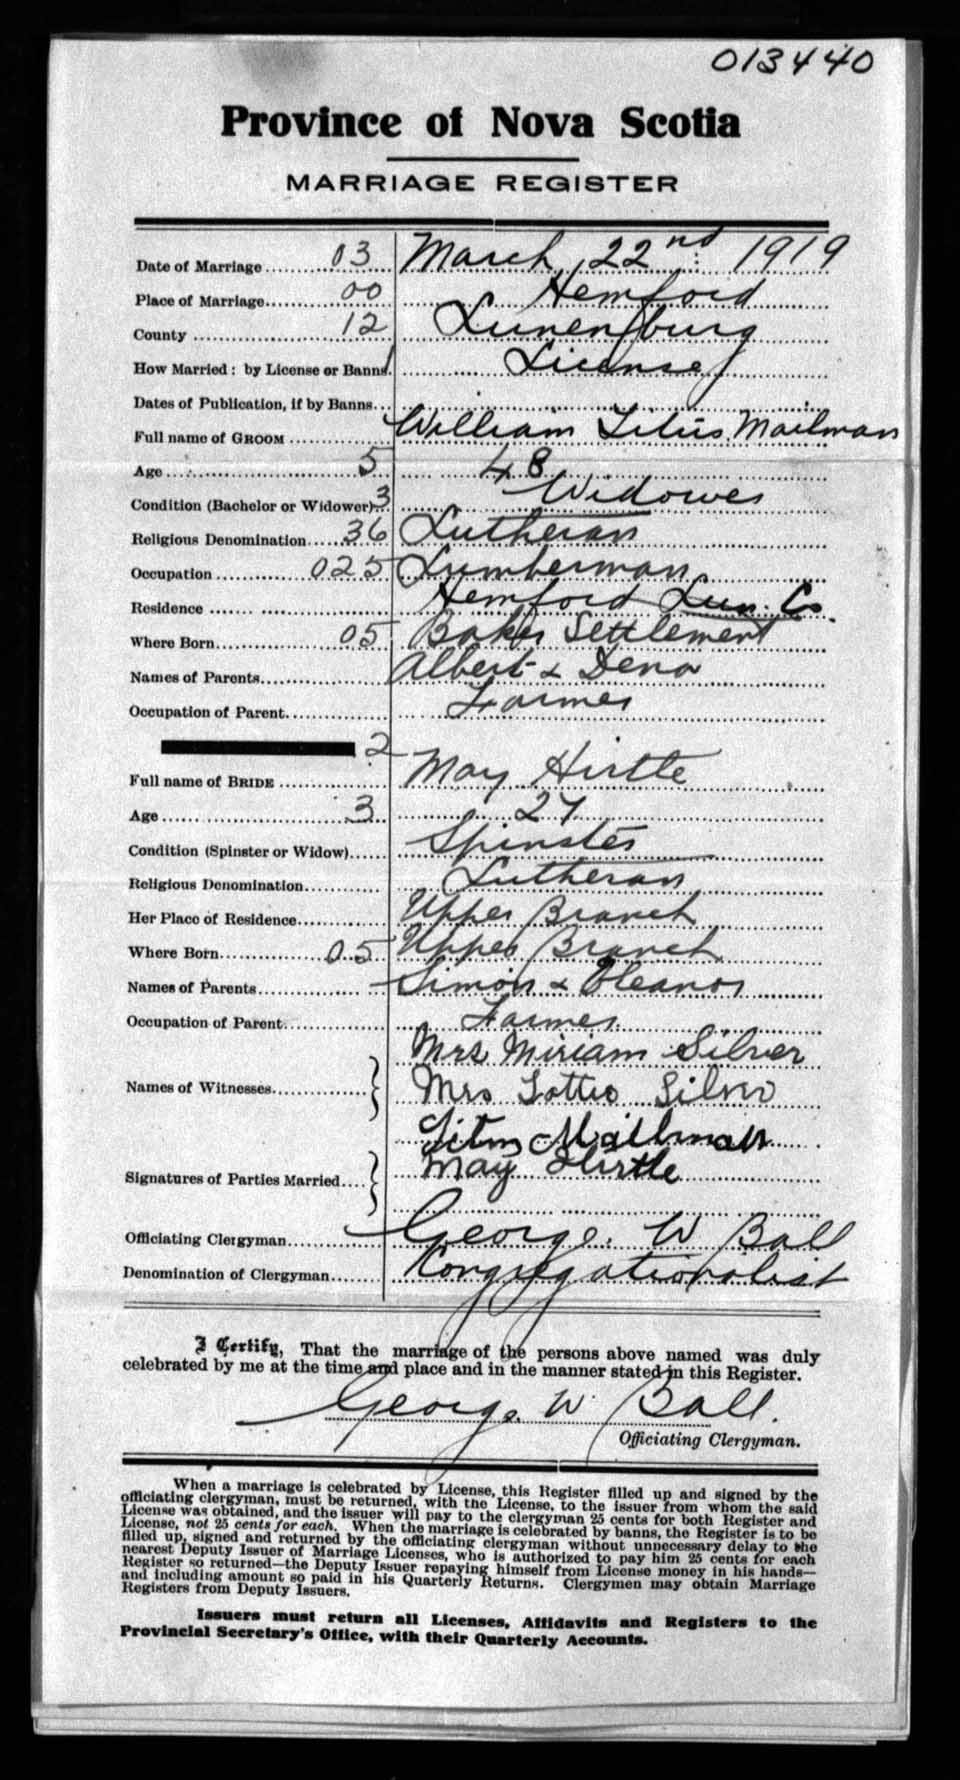 013440
Province of Nova Scotia
MARRIAGE REGISTER
Date of Marriage 03 March 22nd 1919
Place of Marriage 00 Hemford
County 12 Lunenburg
How Married: by License or Banns License
Dates of Publication, if by Banns
Full name of GROOM William Titus Mailman
Age 5 48
Condition (Bachelor or Widower) 3 Widower
Religious Denomination 36 Lutheran
Occupation 025 Lumberman
Residence Hemford Lun. Co.
Where Born 05 Baker Settlement
Names of Parents Albert & Dena
Occupation of Parent Farmer
2
Full name of BRIDE May Hirtle
Age 3 27
Condition (Spinster or Widow) Spinster
Religious Denomination Lutheran
Her Place of Residence Upper Branch
Where Born 05 Upper Branch
Names of Parents Simon & Eleanor
Occupation of Parent Farmer
Mrs Miriam Silver
Names of Witnesses Mrs Lottie Silver
Titus Mailman
Signatures of Parties Married May Hirtle
Officiating Clergyman George. W Ball
Denomination of Clergyman Congregationalist
I Certify, That the marriage of the persons above named was duly
celebrated by me at the time and place and in the manner stated in this Register.
George. W Ball.
Officiating Clergyman.
When a marriage is celebrated by License, this Register filled up and signed by the
officiating clergyman, must be returned, with the License, to the issuer from whom the said
License was obtained, and the issuer will pay to the clergyman 25 cents for both Register and
License, not 25 cents for each. When the marriage is celebrated by banns, the Register is to be
filled up, signed and returned by the officiating clergyman without unnecessary delay to the
nearest Deputy Issuer of Marriage Licenses, who is authorized to pay him 25 cents for each
Register so returned—the Deputy Issuer repaying himself from License money in his hands—
and including amount so paid in his Quarterly Returns. Clergymen may obtain Marriage
Registers from Deputy Issuers.
Issuers must return all Licenses, Affidavits and Registers to the
Provincial Secretary's Office, with their Quarterly Accounts.